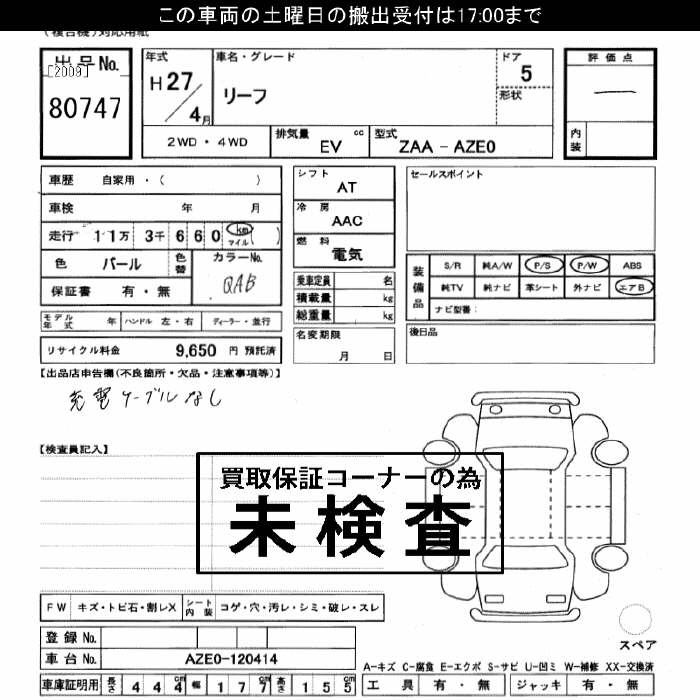 この車両の土曜日の搬出受付は17:00まで
(複合機)対応用紙
出品No.
[2009]
80747
年式
H27/4月
車名・グレード
リーフ
ドア
5
形状
評価点
―
内装
2WD・4WD
排気量
cc
EV
型式
ZAA-AZE0
車歴 自家用・( )
車検 年 月
走行 11万 3千 6 6 0 km マイル ( )
色 パール
色替
カラーNo.
QAB
保証書 有・無
モデル年式 年 ハンドル 左・右 ディーラー・並行
リサイクル料金 9,650 円 預託済
シフト
AT
冷房
AAC
燃料
電気
乗車定員 名
積載量 kg
総重量 kg
名変期限
月 日
セールスポイント
装備品
S/R 純A/W P/S P/W ABS
純TV 純ナビ 革シート 外ナビ エアB
ナビ型番:
後日品
【出品店申告欄(不良箇所・欠品・注意事項等)】
充電ケーブルなし
【検査員記入】
買取保証コーナーの為
未検査
FW キズ・トビ石・割レX シート内装 コゲ・穴・汚レ・シミ・破レ・スレ
登録No.
車台No. AZE0-120414
車庫証明用 長さ 4 4 4 cm 幅 1 7 7 cm 高さ 1 5 5 cm
スペア
A-キズ C-腐食 E-エクボ S-サビ U-凹ミ W-補修 XX-交換済
工具 有・無 ジャッキ 有・無